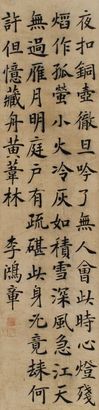 夜扣銅壺徹旦吟了無人會此時心燈
熸作孤螢小火冷灰如積雪深風急江天
無過雁月明庭戶有疏碪此身究竟歸何
許但憶藏舟黃葦林 李鴻章